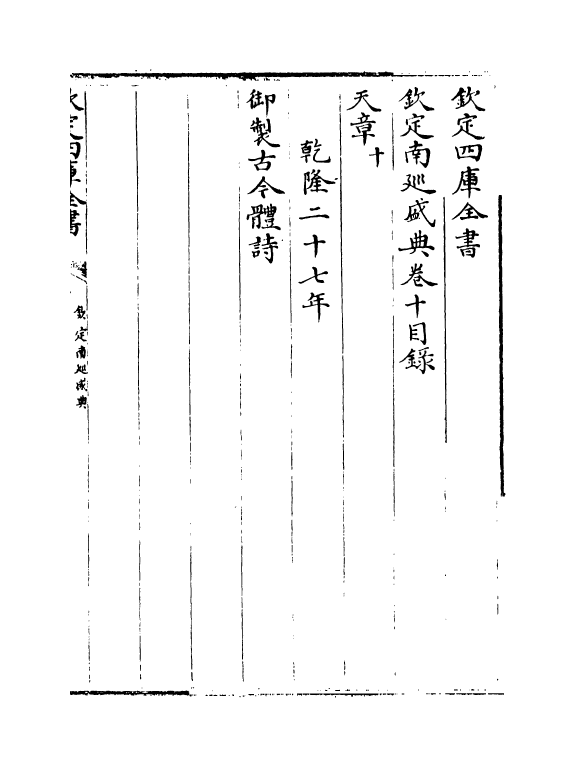 欽定四庫全書
欽定南巡盛典卷十目錄
天章十
乾隆二十七年
御製古今體詩
欽定四庫全書
欽定南巡盛典